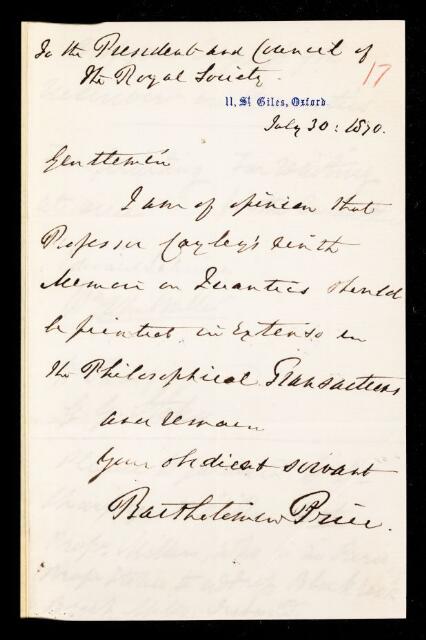 To the President and Council of
the Royal Society.
17
11, St Giles, Oxford
July 30: 1870.
Gentlemen
I am of opinion that
Professor Cayley's ninth
Memoir on Quantics should
be printed in extenso in
the Philosophical Transactions
and remain
your obedient servant
Bartholomew Price.